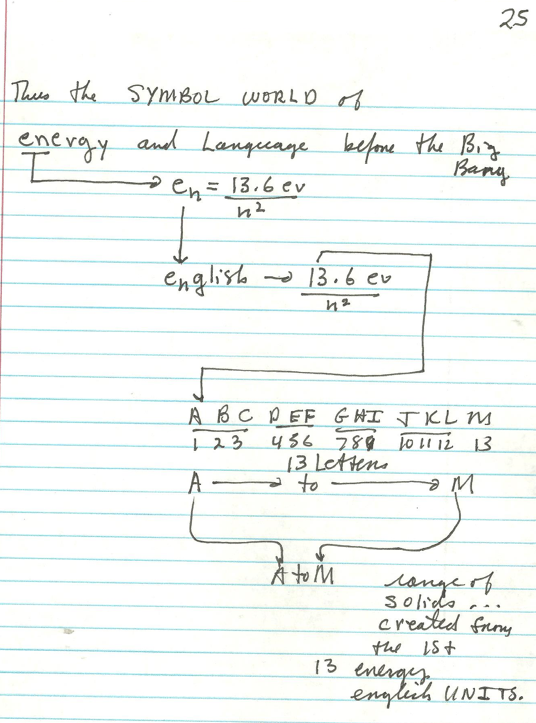 25
Thus the SYMBOL WORLD of
energy and Language before the Big
Bang
en = 13.6 ev
n²
english → 13.6 ev
n²
A B C D E F G H I J K L M
1 2 3 4 5 6 7 8 9 10 11 12 13
13 Letters
A → to → M
A to M
range of
solids ...
created from
the 1st
13 energy
english UNITS.